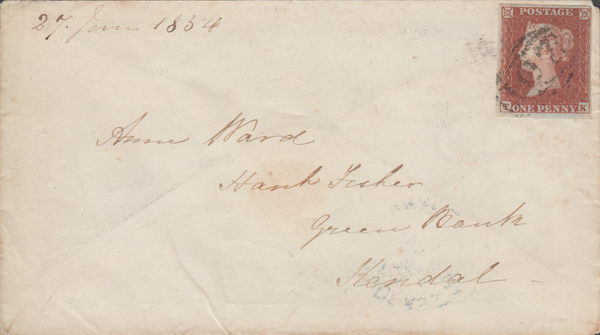 27. June 1854
POSTAGE
ONE PENNY K
Anne Ward
Hannh Fisher
Green Bank
Kendal